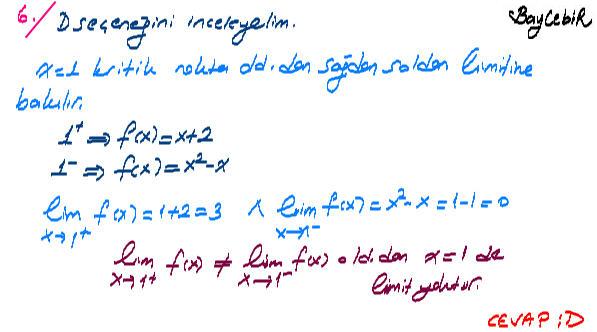 6./ D seçeneğini inceleyelim. BayCebiR
x=1 kritik nokta old.dan sağdan soldan limitine
bakılır.
1⁺ ⇒ f(x)=x+2
1⁻ ⇒ f(x)=x²-x
lim f(x)=1+2=3 ∧ lim f(x)=x²-x=1-1=0
x→1⁺ x→1⁻
lim f(x) ≠ lim f(x) old.dan x=1 de
x→1⁺ x→1⁻ limit yoktur.
CEVAP:D